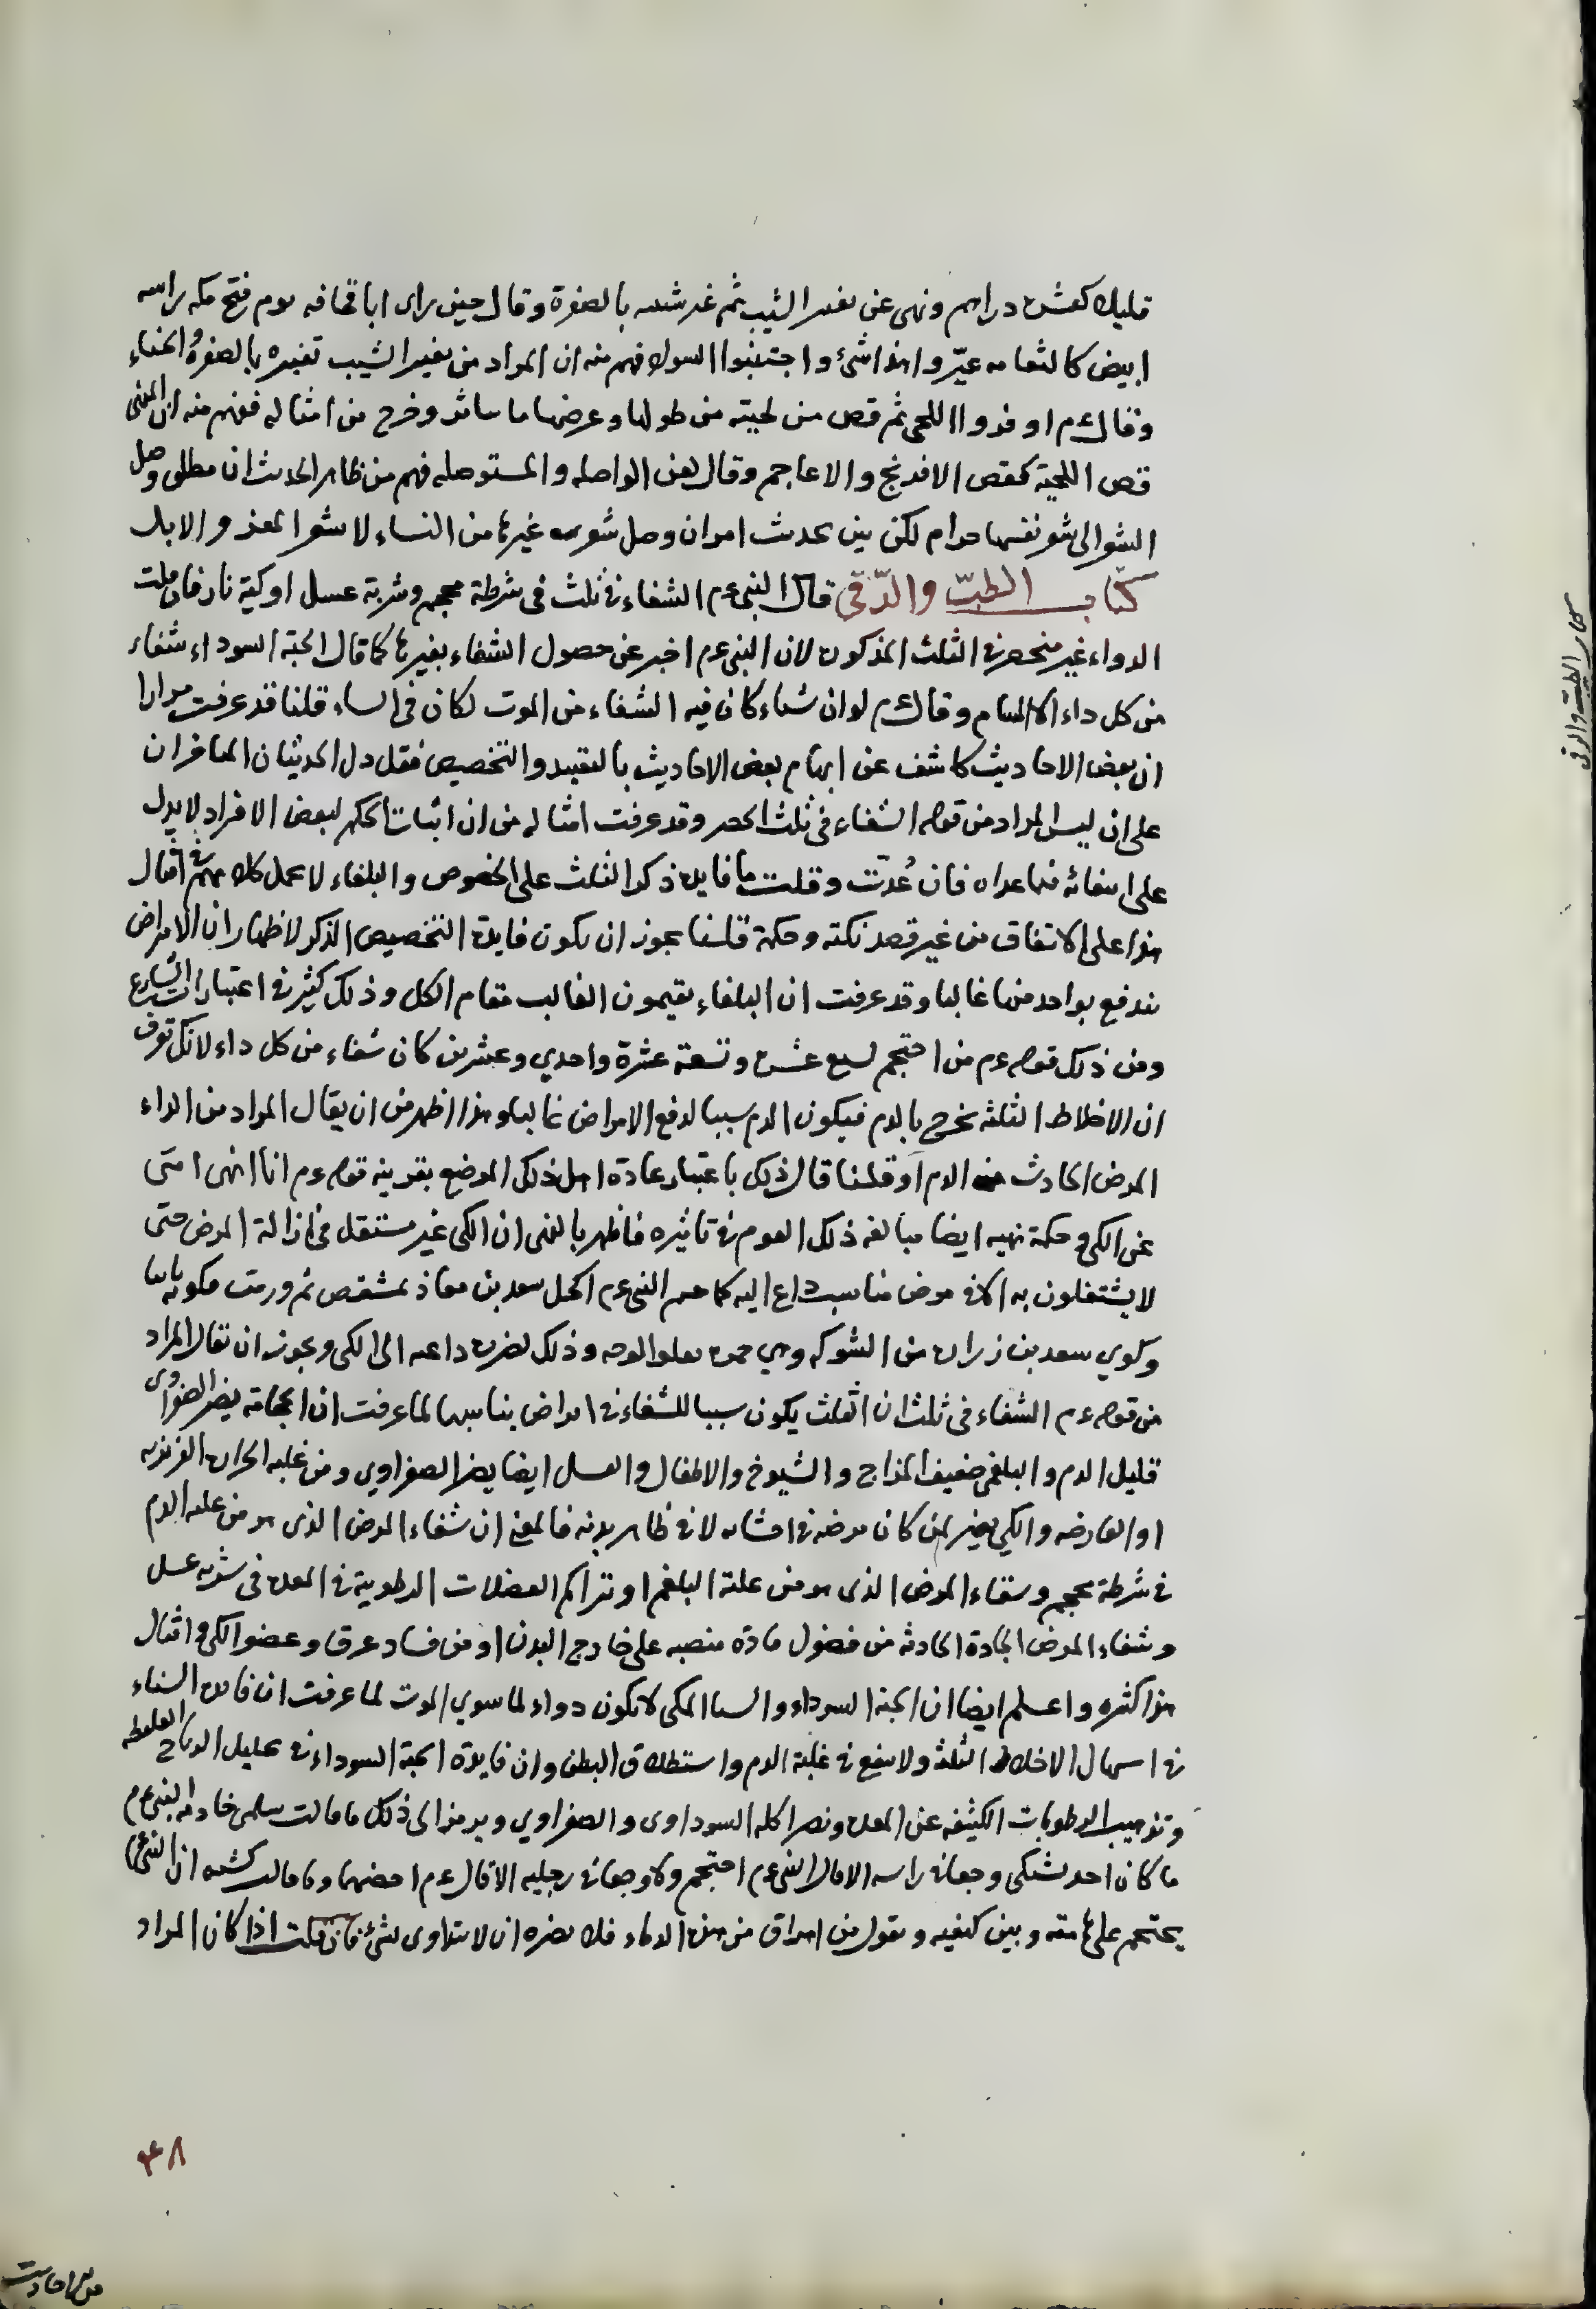 قليلا كعشرة دراهم ونهى عن تغيير الشيب ثم غير شيبه بالصفرة وقال حين راى ابا قحافه يوم فتح مكه راسه
ابيض كالثغامه غيّروا هذا بشئ واجتنبوا السواد فهم منه ان المراد من تغيير الشيب تغييره بالصفرة والحناء
وقال عم اوفروا اللحى ثم قص من لحيته من طولها وعرضها ما وخرج من امثاله ففهم منه ان المعنى
قص اللحية كقص الافرنج والاعاجم وقال لعن الواصله والمستوصله فهم من ظاهر الحديث ان مطلق وصل
الشعر الى شعر نفسها حرام لكن بين بحديث اخر ان وصل شعر غيرها من النساء لا شعر المعز والابل
كتاب الطبّ والرّقى قال النبى عم الشفاء فى ثلث فى شرطة محجم وشربة عسل او كية نار فان قلت
الدواء غير منحصر فى الثلث المذكور لان النبى عم اخبر عن حصول الشفاء بغيرها كما قال الحبة السوداء شفاء
من كل داء الا السام وقال عم لو ان شيئا كان فيه الشفاء من الموت لكان فى السناء قلنا قد عرفت مرارا
ان بعض الاحاديث كاشف عن ابهام بعض الاحاديث بالتقييد والتخصيص فقد دل الحديثان المذكوران
على ان ليس المراد من قوله الشفاء فى ثلث الحصر وقد عرفت امثاله من ان اثبات الحكم لبعض الافراد لا يدل
على انتفائه فيما عداه فان عُدت وقلت ما فايدة ذكر الثلث على الخصوص والبلغاء لا يحمل كلامهم فى امثال
هذا على الاتفاق من غير قصد نكتة وحكمة قلنا يجوز ان يكون فايدة التخصيص الذكر لاظهار ان الامراض
يندفع بواحد منها غالبا وقد عرفت ان البلغاء يقيمون الغالب مقام الكل وذلك كثير فى اعتبارات الشارع
ومن ذلك قوله عم من احتجم لسبع عشرة وتسعة عشرة واحدي وعشرين كان شفاء من كل داء لانك تعرف
ان الاخلاط الثلثة يخرج بالدم فيكون الدم سببا لدفع الامراض غالبا وهذا اظهر من ان يقال المراد من الداء
المرض الحادث من الدم او قلنا قال ذلك باعتبار عادة اهل ذلك الموضع بقرينة قوله عم انا انهى امتى
عن الكي وحكمة نهيه ايضا مبالغه ذلك القوم فى تاثيره فاظهر بالنهى ان الكى غير مستقل فى ازالة المرض حتى
لا يشتغلون به الا فى مرض مناسب داع اليه كما حسم النبى عم اكحل سعد بن معاذ بمشقص ثم ورمت فكوى ثانيا
وكوي سعد بن زرارة من الشوكه وهي حمرة يعلو الوجه وذلك لضرورة داعيه الى الكى ويجوز ان يقال المراد
من قوله عم الشفاء فى ثلث ان الثلث يكون سببا للشفاء فى امراض يناسبها لما عرفت ان الحجامة يضر الصفراوى
قليل الدم والبلغمى ضعيف المزاج والشيوخ والاطفال والعسل ايضا يضر الصفراوي ومن غلبه الحرارة الغريزيه
او العارضه والكي يضر لمن كان مرضه فى احشائه لا فى ظاهر بدنه فالمعنى ان شفاء المرض الذى هو من غلبه الدم
فى شرطة محجم وشفاء المرض الذى هو من غلبة البلغم او تراكم الفضلات الرطوبية فى المعدة فى شربه عسل
وشفاء المرض الحادة الحادثه من فضول مادة منصبه على خارج البدن او من فساد عرق وعضو الكى وامثال
هذا كثيره واعلم ايضا ان الحبة السوداء والسنا المكى لا يكون دواء لما سوي الموت لما عرفت ان فايدة السناء
فى اسهال الاخلاط الثلثة ولا ينفع فى غلبة الدم واستطلاق البطن وان فايدة الحبة السوداء فى تحليل الرياح الغليظه
وتذهيب الرطوبات الكثيفه عن المعدة ويضر اكله السوداوى والصفراوي ويرمز الى ذلك ما قالت سلمى خادمة النبى عم
ما كان احد يشتكى وجعا فى راسه الا قال النبى عم احتجم ولا وجعا فى رجليه الا قال عم اخضبها وما قالت كبشه ان النبى عم
يحتجم على هامته وبين كتفيه ويقول من اهراق من هذه الدماء فلا يضره ان لا يتداوى بشئ فان قلت اذا كان المراد
٣٨
كتاب الطب والرقى